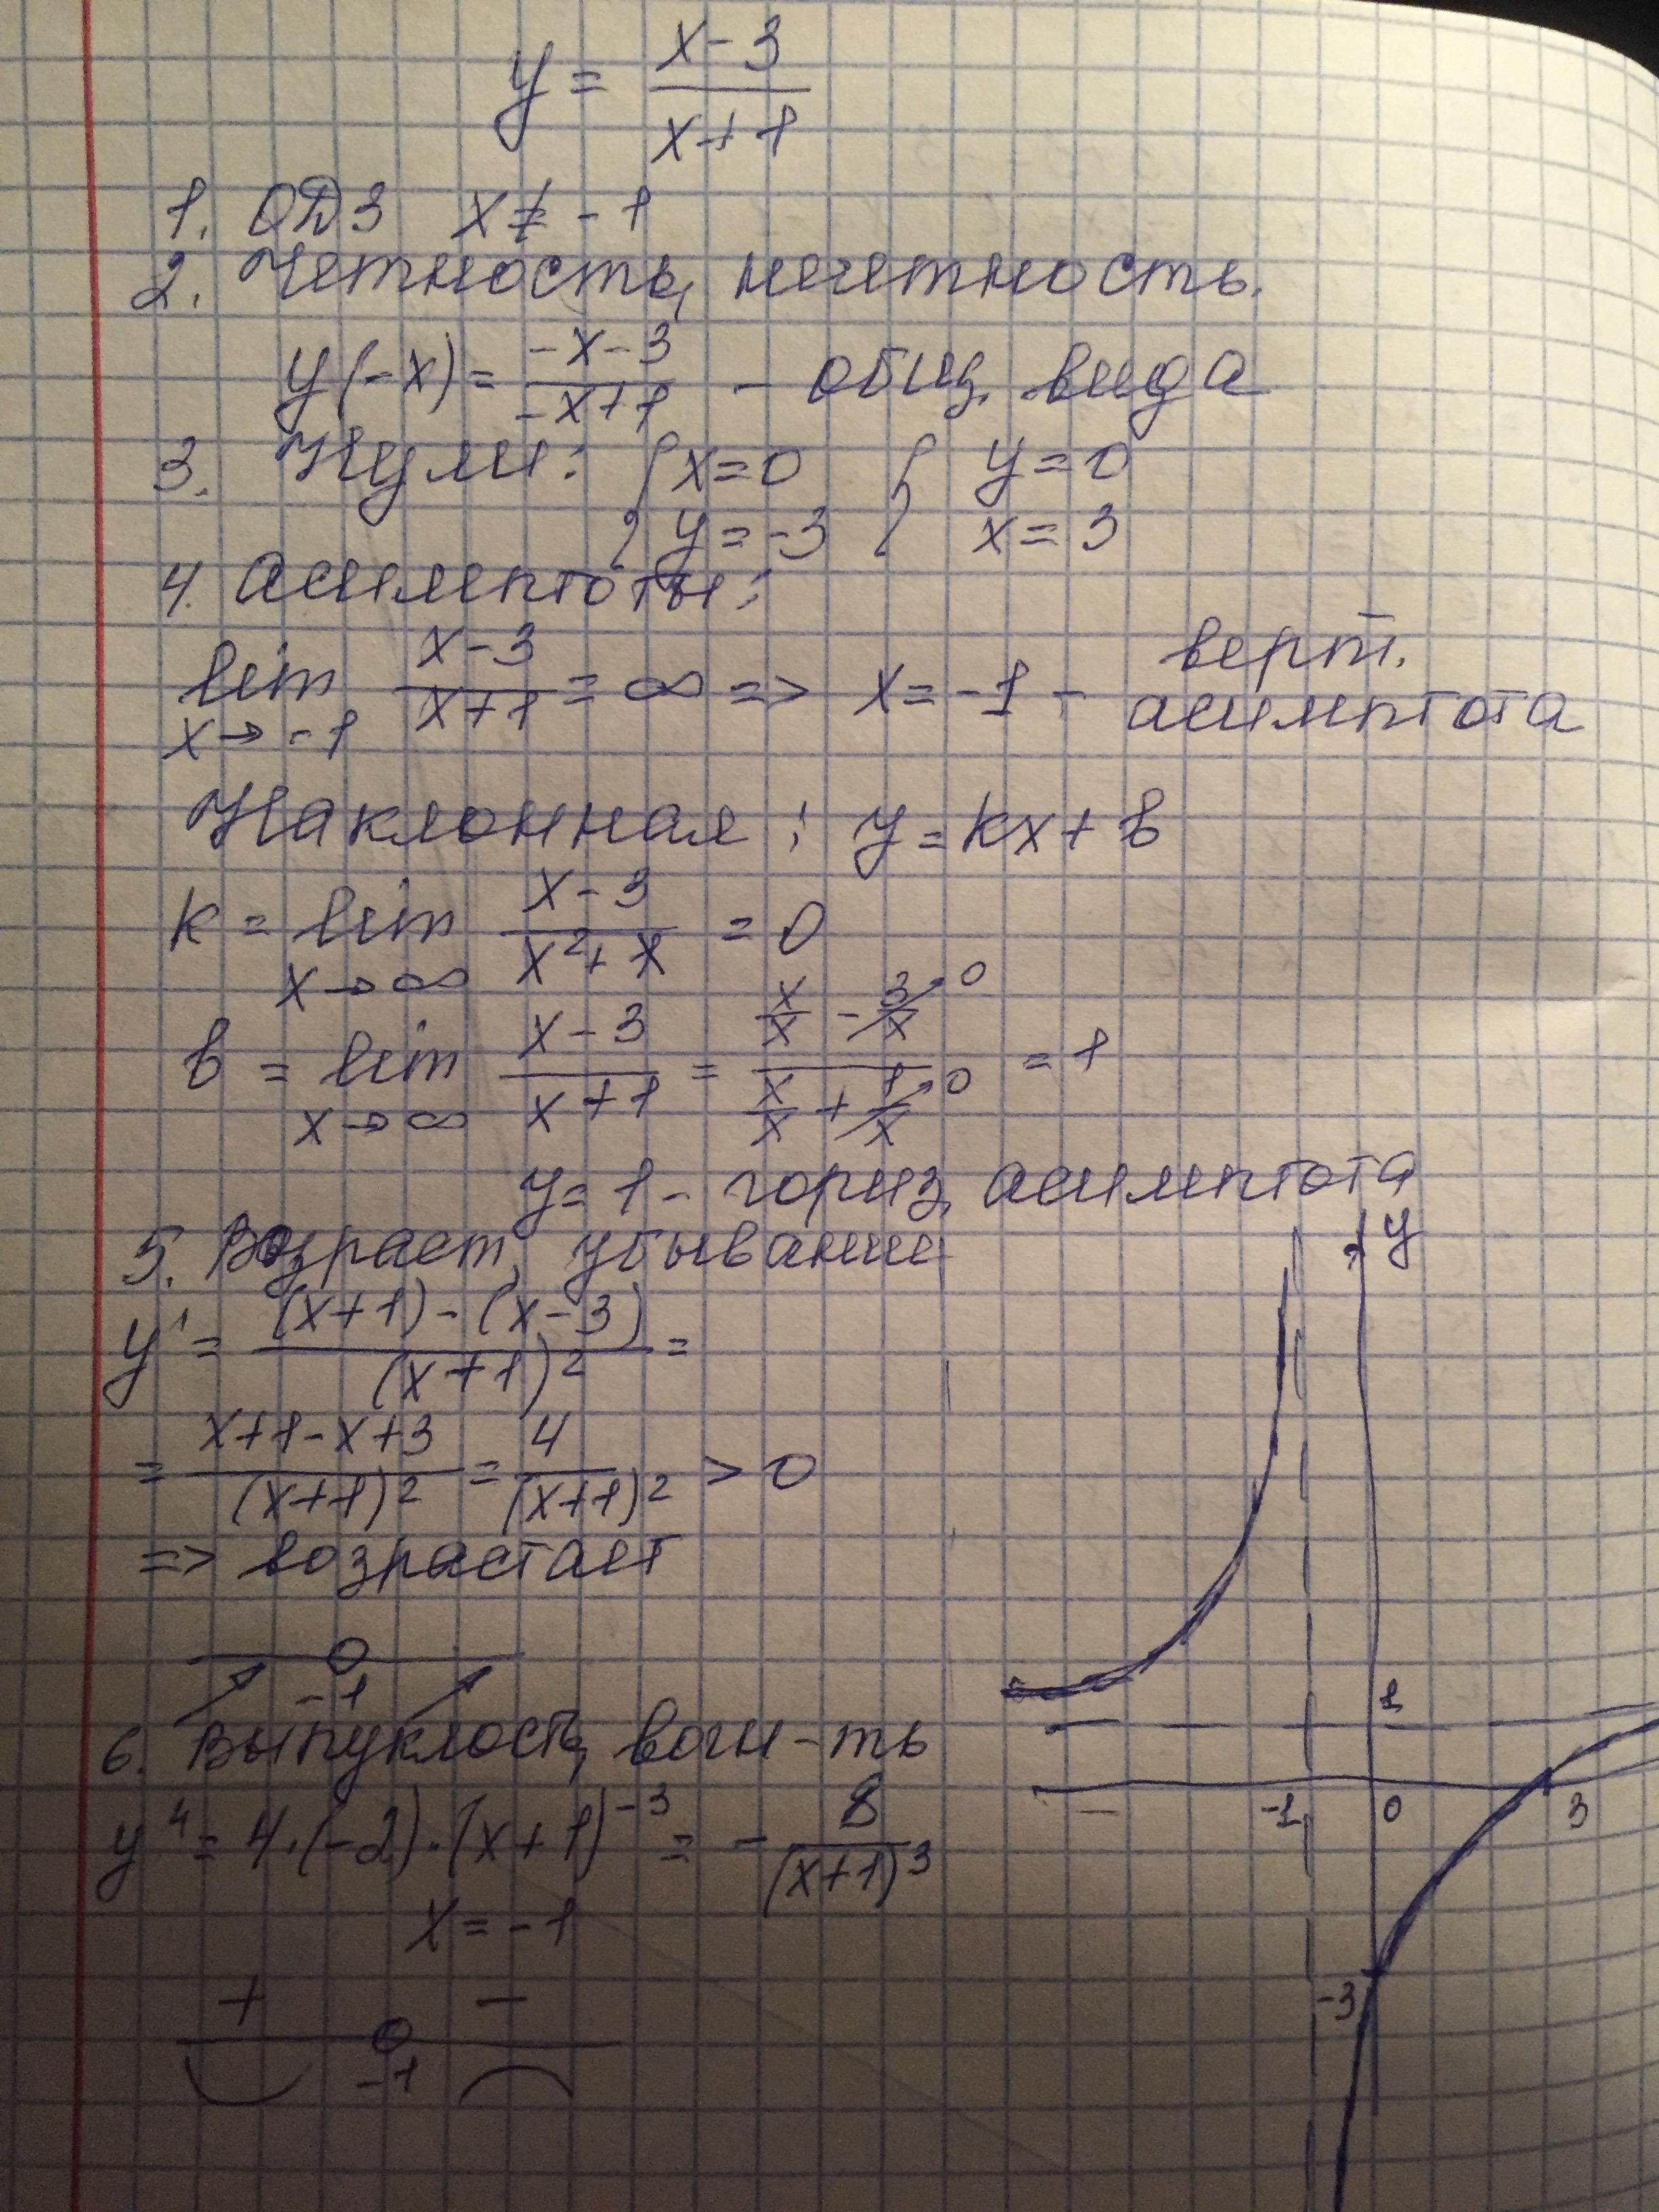 y = (x-3)/(x+1)
1. ОДЗ x ≠ -1
2. Четность, нечетность.
y(-x) = (-x-3)/(-x+1) - общ. вида
3. Нули: { x=0 { y=0
y=-3 x=3
4. Асимптоты:
lim x→-1 (x-3)/(x+1) = ∞ => x=-1 - верт. асимптота
Наклонная: y=kx+b
k = lim x→∞ (x-3)/(x²+x) = 0
b = lim x→∞ (x-3)/(x+1) = (x/x - 3/x→0)/(x/x + 1/x→0) = 1
y=1 - гориз. асимптота
5. Возраст, убывание
y' = ((x+1)-(x-3))/(x+1)² =
= (x+1-x+3)/(x+1)² = 4/(x+1)² > 0
=> возрастает
-1
6. Выпуклость, вогн-ть
y'' = 4·(-2)·(x+1)⁻³ = - 8/(x+1)³
x=-1
+ -
-1
y
1
-1 0 3
-3